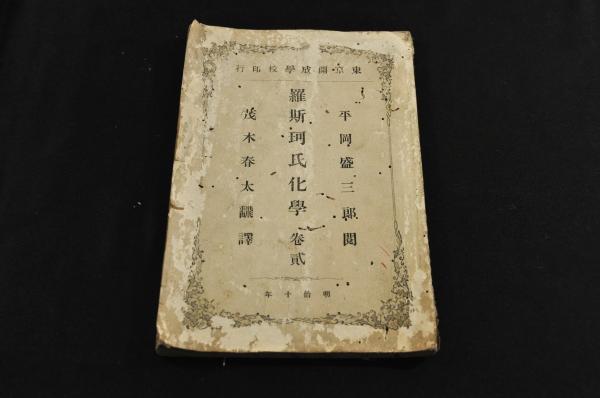 東京開成學校印行
平岡盛三郎閱
羅斯珂氏化學 卷貳
茂木春太飜譯
明治十年